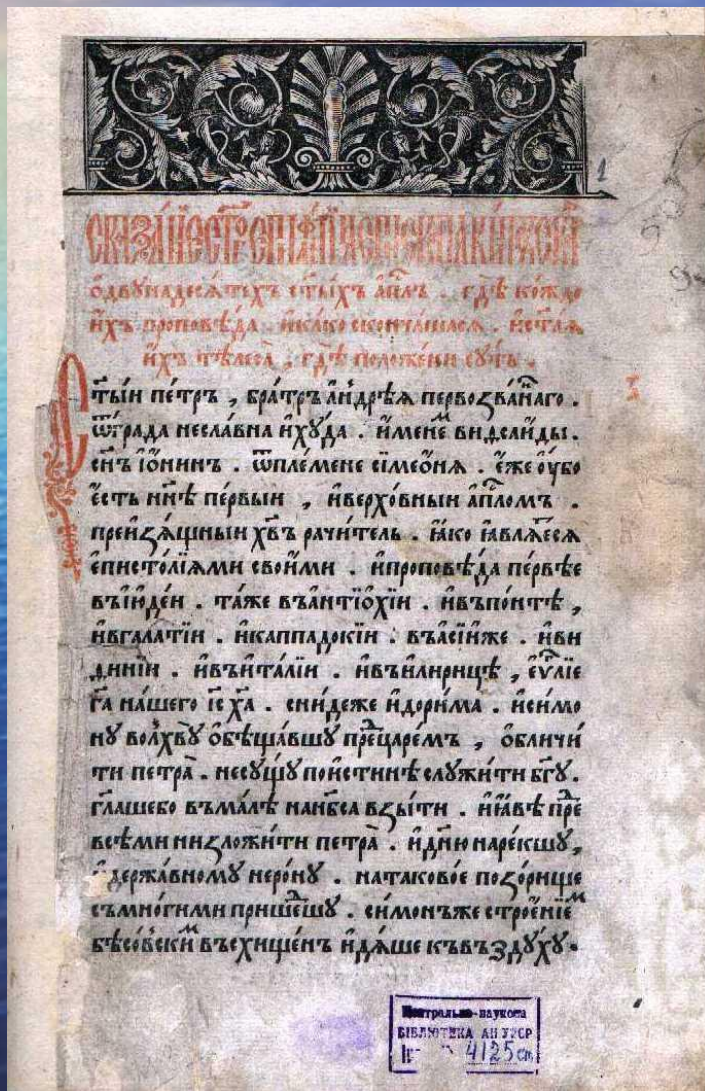 1
СКАЗА́НЇЕ СТ҃Г ЕПИФА́НЇЯ ЕПИСКѸПА КИ́ПРСКАГ
ѽдвꙋнадесѧ́тихъ ст҃ы́хъ а҆пⷭ҇лъ . гдѣ̀ ко́ждо
и҆́хъ проповѣ́да . и҆ка́ко сконча́шасѧ . и҆ст҃а́ѧ
и҆́хъ тѣлеса̀ , гдѣ̀ положе́ни сꙋ́ть .
Ст҃ы́и пе́тръ , бра́тръ а҆ндре́ѧ первозва́ннаго .
ѿгра́да несла́вна и҆хꙋ́да . и҆́менемъ виѳсаи́ды .
сн҃ъ і҆ѡ́нинъ . ѿпле́мене сїмео́нѧ . є҆́же ᲂу҆́бо
є҆́сть нн҃ѣ пе́рвыи , и҆верхо́вныи а҆пⷭ҇ломъ .
преи҆зѧ́щныи хв҃ъ рачи́тель . ꙗ҆́ко ꙗ҆влѧ́еесѧ
є҆писто́лїѧми свои́ми . и҆проповѣ́да пе́рвѣе
въі҆ю҆де́и . та́же въа҆нтїо́хїи . и҆въпо́нтѣ ,
и҆вгала́тїи . и҆каппадокі́и . въа҆сі́иже . и҆ви
ѳинїи . и҆въи҆та́лїи . и҆въи҆лири́цѣ , є҆ѵⷢ҇лїе
га на́шего і҆с ха . сни́деже и҆дори́ма . и҆си́мо
нꙋ волхвꙋ̀ ѻ҆бѣща́вшꙋ преⷣцаре́мъ , ѻ҆бличи́
ти петра̀ . несꙋ́щꙋ пои҆́стиннѣ слꙋжи́ти бг҃ꙋ .
гл҃ашебо въма́лѣ нанб҃са взы́ти . и҆ꙗ҆́вѣ преⷣ
всѣ́ми низложи́ти петра̀ . и҆дн҃ю наре́кшꙋ ,
и҆держа́вномꙋ неро́нꙋ . натаково́е позо́рище
съмно́гими прише́дшꙋ . си́монъже строе́нїеⷨ
бѣсо́вскиⷨ въсхище́нъ и҆дѧ́ше къвъздꙋ́хꙋ .
Центрально-наукова
БІБЛІОТЕКА АН УРСР
4125 ст